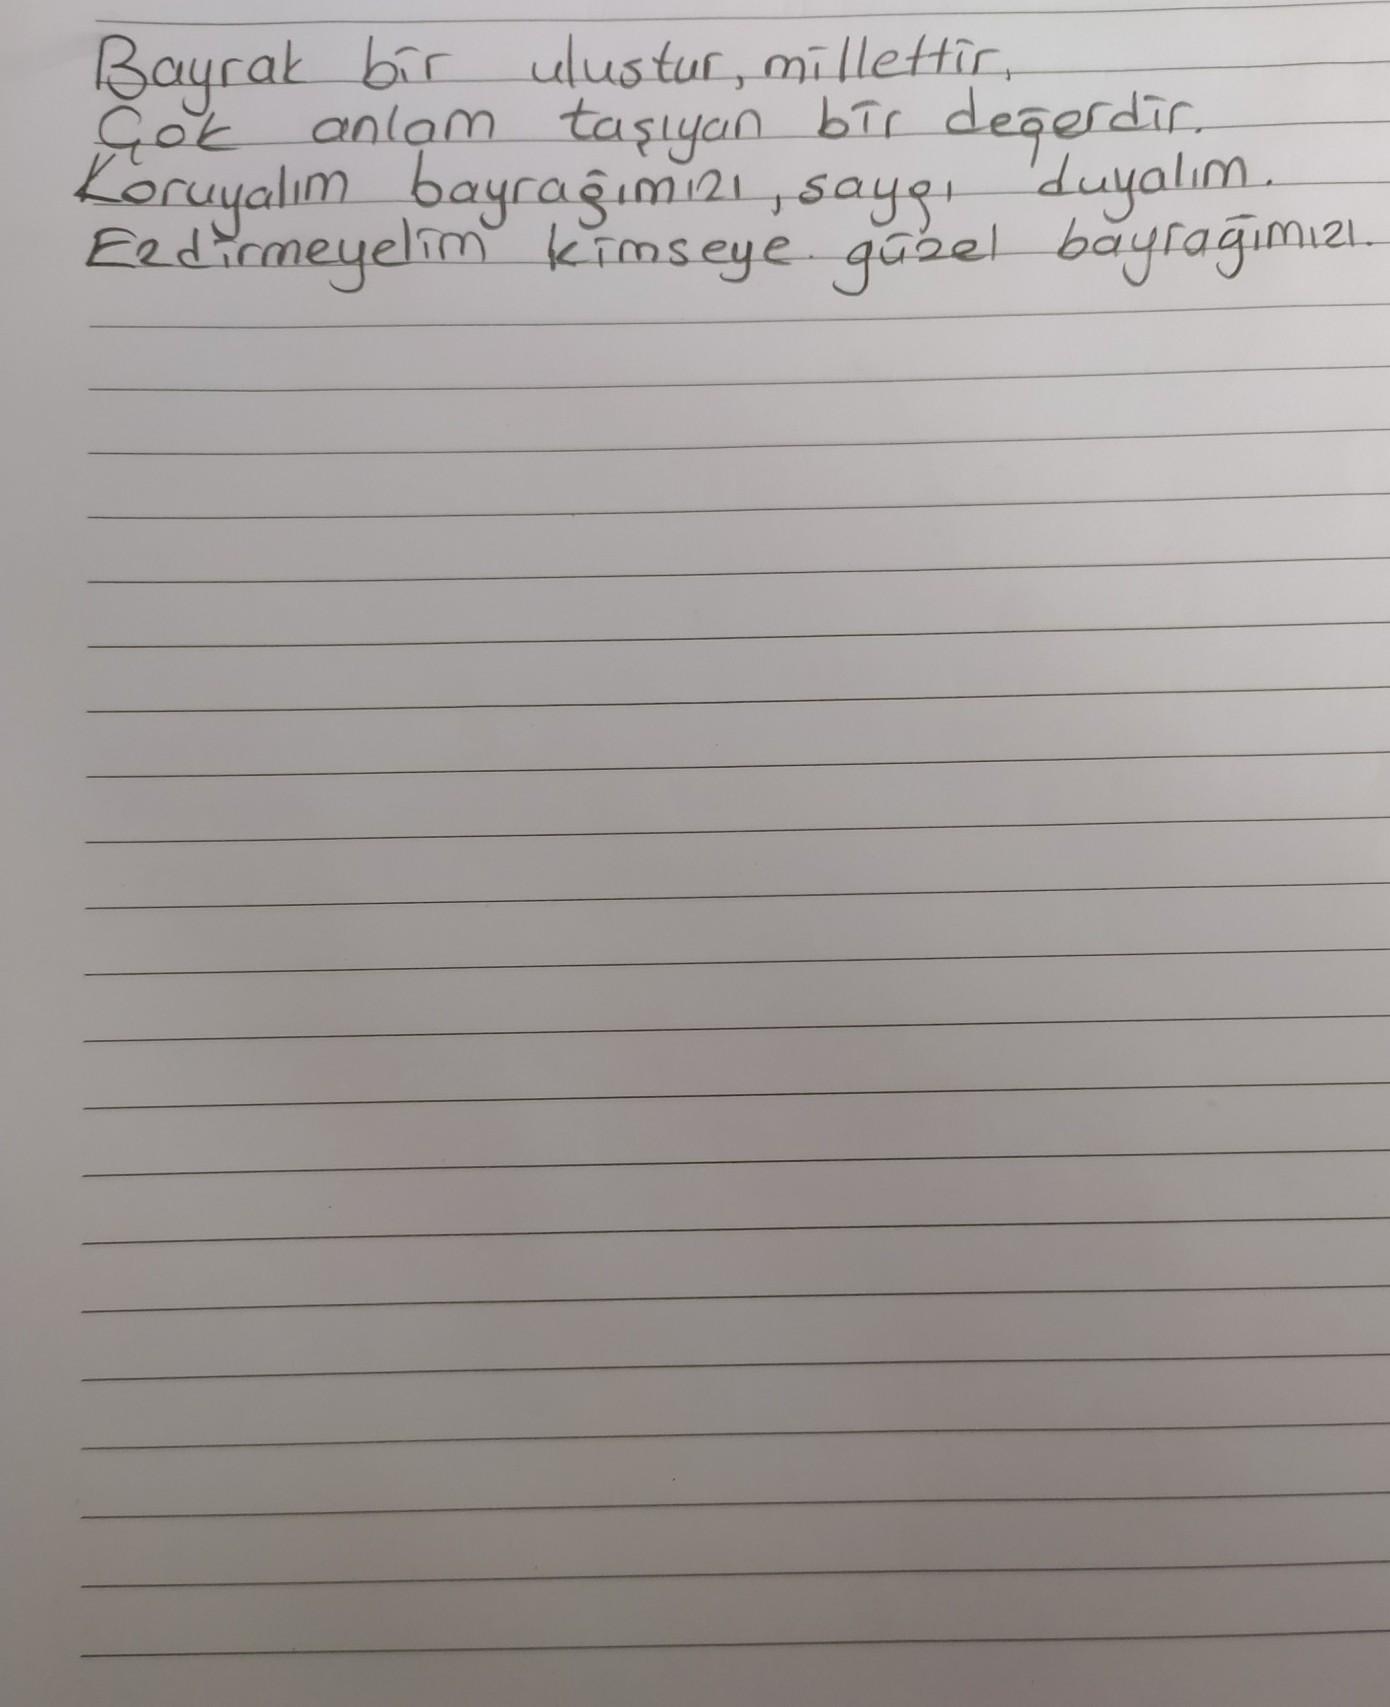 Bayrak bir ulustur, millettir.
Çok anlam taşıyan bir değerdir.
Koruyalım bayrağımızı, saygı duyalım.
Ezdirmeyelim kimseye güzel bayrağımızı.